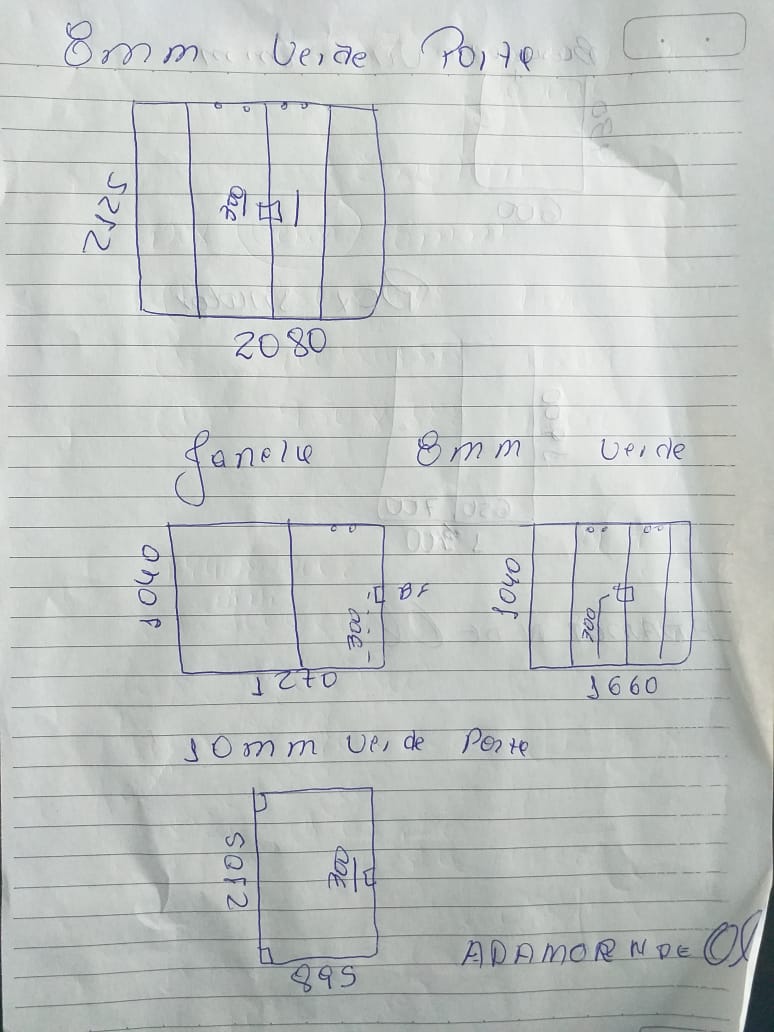 8mm Verde Porta
2125
300
2080
Janela 8mm Verde
1040
300
1270
1040
300
1660
10mm Verde Porta
2105
300
895
ADAMOR N DE